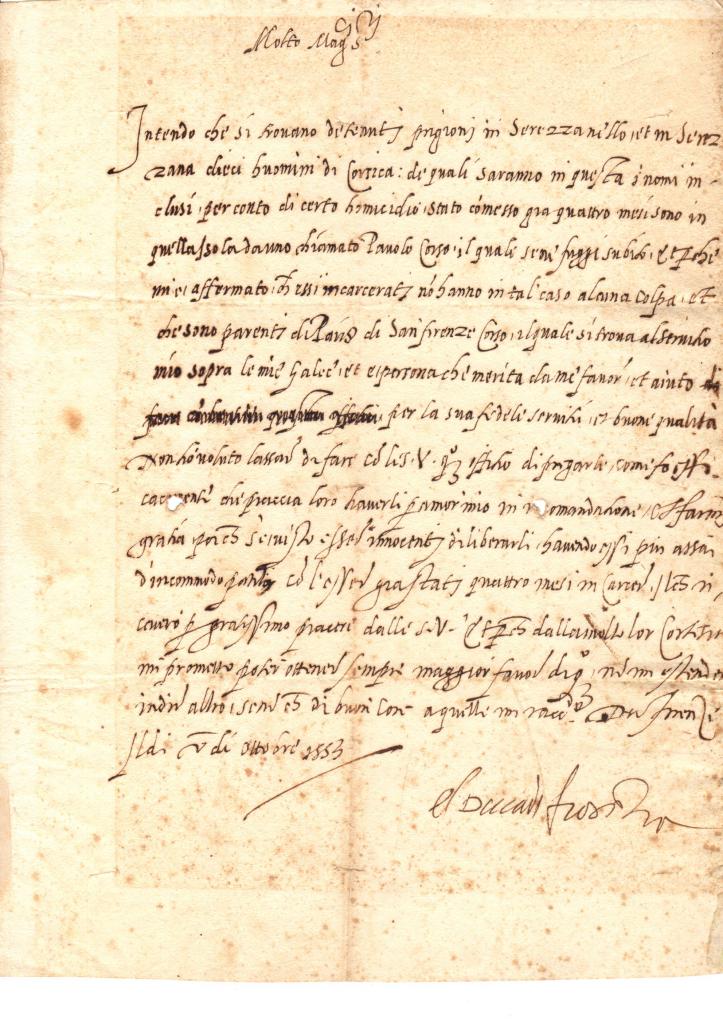 Molto Mag.ci S.ri
Intendo che si trouano detenuti prigioni in Serezzanello, et in Serez
zana dieci huomini di Corsica: de quali saranno in questa i nomi in
clusi, per conto di certo homicidio, stato cômesso gia quattro mesi sono in
quella Isola da uno chiamato Pauolo Corso, il quale se ne fuggì subito, Et perche
mi e, affermato, ch essi incarcerati nô hanno in tal caso alcuna colpa, et
che sono parenti di di San firenze Corso, il quale si troua al seruitio
mio sopra le mie Galee, et e persona che merita da me fauori, et aiuto
per la sua fedele seruitù, et buone qualità
Non hô voluto lassar di fare cô le S. V. q.to offitio di pregarle, come fo effi
cacemente che piaccia loro hauerli p amor mio in racomandatione, et farmi
gratia, poi ch s'e uisto esser innocenti di liberarli, hauendo essi pur assai
d'incommodo patito cô l'esser gia stati quattro mesi in Carcere, Il ch ri
ceuerò p gratissimo piacere dalle S. V. Et p ch dalla molta lor Cortesia
mi prometto poter ottener sempre maggior fauor di q.to, nô mi estendero
in dir altro, se nô ch di buon Core a quelle mi racc.do Da Firenze
Il di V di ottobre 1553
el Duca di fiorenza